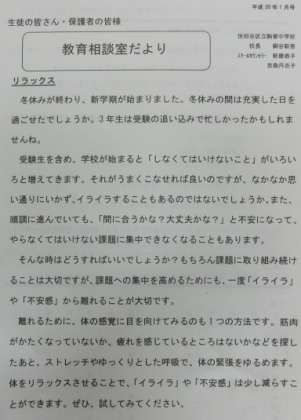 平成 20 年 1 月号
生徒の皆さん・保護者の皆様
教育相談室だより
世田谷区立駒留中学校
校長
スクールカウンセラー
リラックス
冬休みが終わり、新学期が始まりました。冬休みの間は充実した日を
過ごせたでしょうか。3年生は受験の追い込みで忙しかったかもしれま
せんね。
受験生を含め、学校が始まると「しなくてはいけないこと」がいろい
ろと増えてきます。それがうまくこなせれば良いのですが、なかなか思
い通りにいかず、イライラすることもあるのではないでしょうか。また、
順調に進んでいても、「間に合うかな?大丈夫かな?」と不安になって、
やらなくてはいけない課題に集中できなくなることもあります。
そんな時はどうすればいいでしょうか?もちろん課題に取り組み続け
ることは大切ですが、課題への集中を高めるためにも、一度「イライラ」
や「不安感」から離れることが大切です。
離れるために、体の感覚に目を向けてみるのも1つの方法です。筋肉
がかたくなっていないか、疲れを感じているところはないかなどを探し
たあと、ストレッチやゆっくりとした呼吸で、体の緊張をゆるめます。
体をリラックスさせることで、「イライラ」や「不安感」は少し減らすこ
とができます。ぜひ、試してみてください。